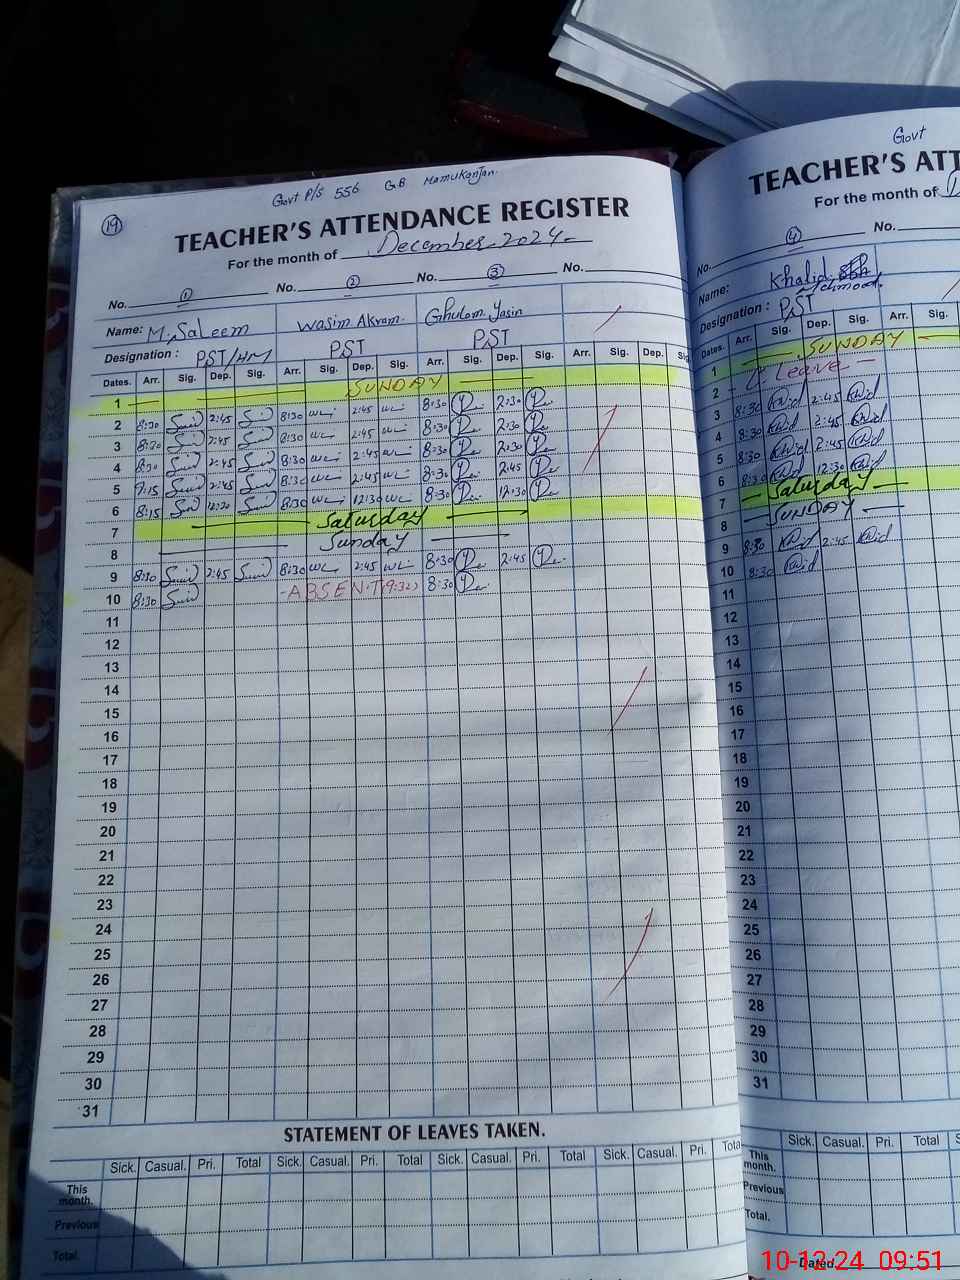 Govt P/S 556 GB Mamukanjan.
19
TEACHER'S ATTENDANCE REGISTER
For the month of December 2024
No. 1 No. 2 No. 3 No.
Name: M. Saleem Wasim Akram. Ghulam Yasin
Designation : PST/HM PST PST
Dates. Arr. Sig. Dep. Sig. Arr. Sig. Dep. Sig. Arr. Sig. Dep. Sig. Arr. Sig. Dep. Sig.
1 SUNDAY
2 8:30 2:45 8:30 2:45 8:30 2:30
3 8:30 2:45 8:30 2:45 8:30 2:30
4 8:30 2:45 8:30 2:45 8:30 2:30
5 2:45 8:30 2:45 8:30 2:45
6 8:15 8:30 12:30 8:30 12:30
7 Saturday
8 Sunday
9 8:30 2:45 8:30 2:45 8:30 2:45
10 8:30 ABSENT (9:32) 8:30
11
12
13
14
15
16
17
18
19
20
21
22
23
24
25
26
27
28
29
30
31
STATEMENT OF LEAVES TAKEN.
Sick. Casual. Pri. Total Sick. Casual. Pri. Total Sick. Casual. Pri. Total Sick. Casual. Pri. Total
This month.
Previous
Total.
Govt
TEACHER'S ATT
For the month of
No. 4 No.
Name: Khalid
Designation : PST
Dates. Arr. Sig. Dep. Sig. Arr. Sig.
1 SUNDAY
2 Leave
3 8:30 2:45
4 8:30 2:45
5 8:30 2:45
6 8:30 12:30
7 Saturday
8 SUNDAY
9 8:30 2:45
10 8:30
11
12
13
14
15
16
17
18
19
20
21
22
23
24
25
26
27
28
29
30
31
Sick. Casual. Pri. Total Sick.
This month.
Previous
Total.
Dated.
10-12-24 09:51